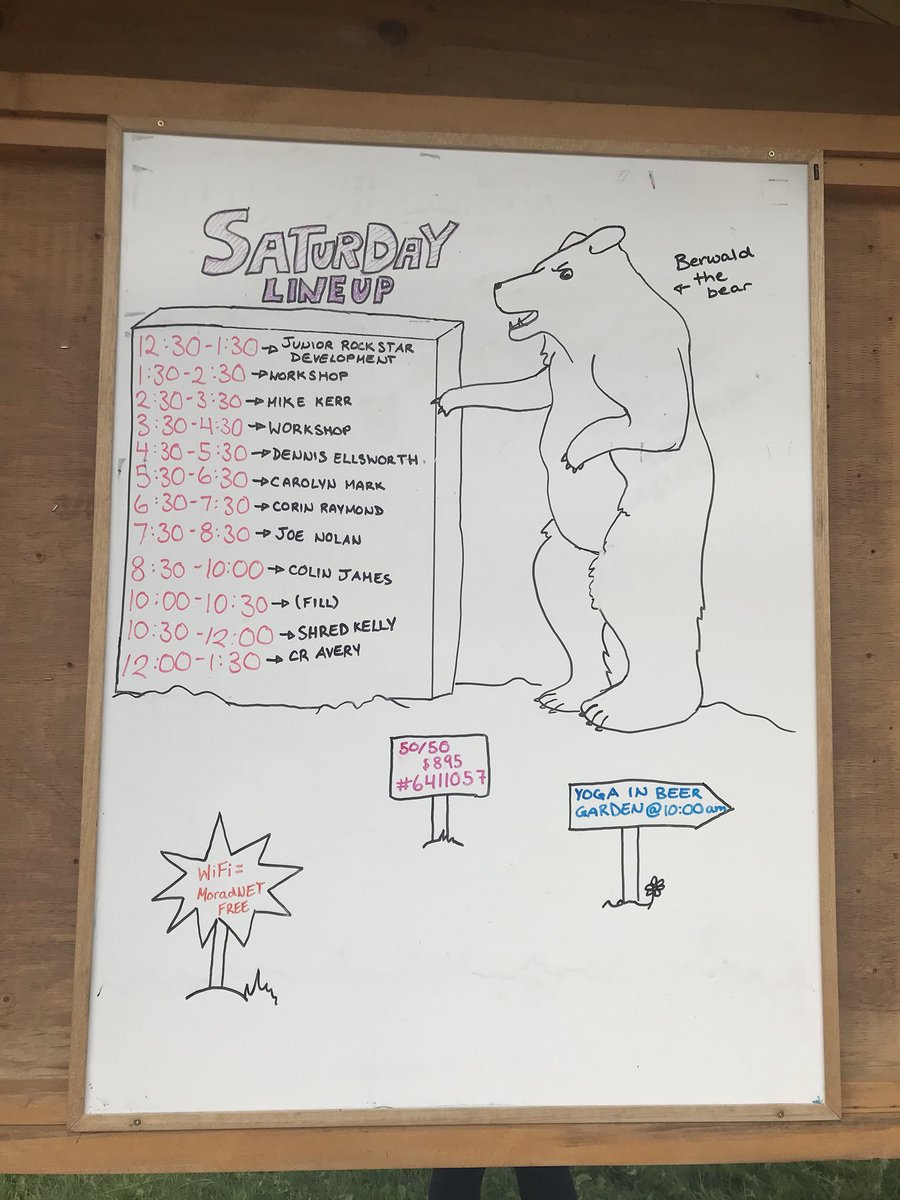 SATURDAY
LINEUP
Berwald
the
bear
12:30-1:30 → JUNIOR ROCKSTAR
DEVELOPMENT
1:30-2:30 → WORKSHOP
2:30-3:30 → MIKE KERR
3:30-4:30 → WORKSHOP
4:30-5:30 → DENNIS ELLSWORTH
5:30-6:30 → CAROLYN MARK
6:30-7:30 → CORIN RAYMOND
7:30-8:30 → JOE NOLAN
8:30-10:00 → COLIN JAMES
10:00-10:30 → (FILL)
10:30-12:00 → SHRED KELLY
12:00-1:30 → CR AVERY
50/50
$895
#6411057
YOGA IN BEER
GARDEN@10:00am
WiFi=
MoradNET
FREE